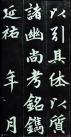 以引其休以質
諸幽尚考銘鐫
延祐 年 月